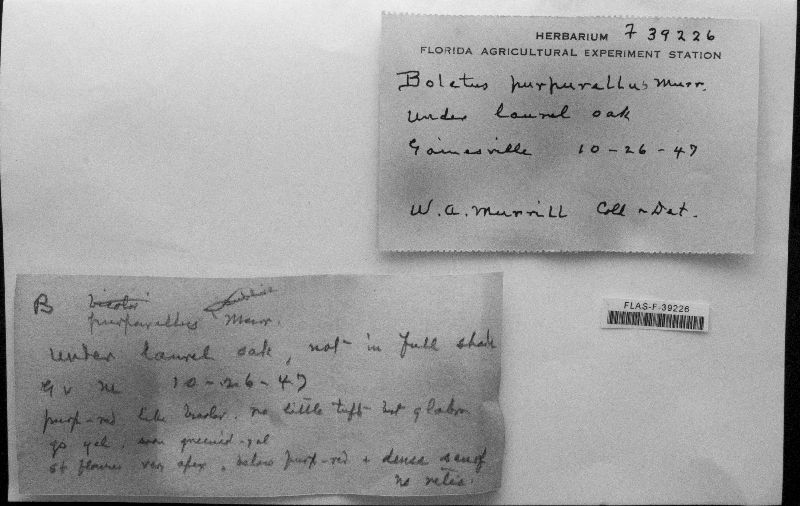 HERBARIUM F 39226
FLORIDA AGRICULTURAL EXPERIMENT STATION
Boletus purpurellus Murr.
under laurel oak
Gainesville 10-26-47
W. A. Murrill Coll & Det.
FLAS-F-39226
B bicolor
purpurellus Murr.
under laurel oak, not in full shade
Gv M 10-26-47
purp-red like bicolor. no little tuft but glabr.
go yel. soon greenish-yel
st flavus very apex, below purp-red + dense scurf
no retic.